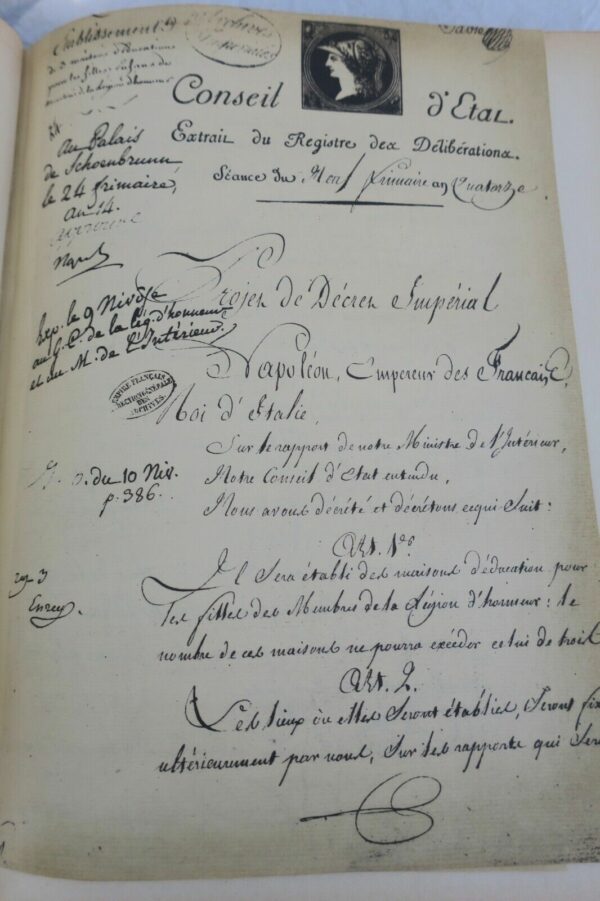 Etablissement
de 3 maisons d'éducation
pour les filles enfans des
membres de la légion d'honneur
Archives
Impériales
Conseil d'Etat.
Extrait du Registre des Délibérations.
Séance du Neuf frimaire an Quatorze
au Palais
de Schoenbrunn
le 24 frimaire,
an 14.
approuvé
Nap
Projet de Décret Impérial
Exp. le 9 Nivôse
au G. C. de la Lég. d'honneur
et au M. de l'Intérieur.
Napoléon, Empereur des Francais,
EMPIRE FRANÇAIS
SECTION GÉNÉRALE
DES
ARCHIVES
Roi d'Italie,
Sur le rapport de notre Ministre de l'Intérieur,
du 10 Niv.
p. 386.
Notre Conseil d'Etat entendu,
Nous avons décrété et décrétons ce qui Suit:
Art. 1er
Il Sera établi des maisons d'éducation pour
les filles des Membres de la Légion d'honneur: le
nombre de ces maisons ne pourra excéder celui de trois
Art. 2.
Les lieux où elles Seront établies, Seront fix
ultérieurement par nous, Sur les rapports qui Ser